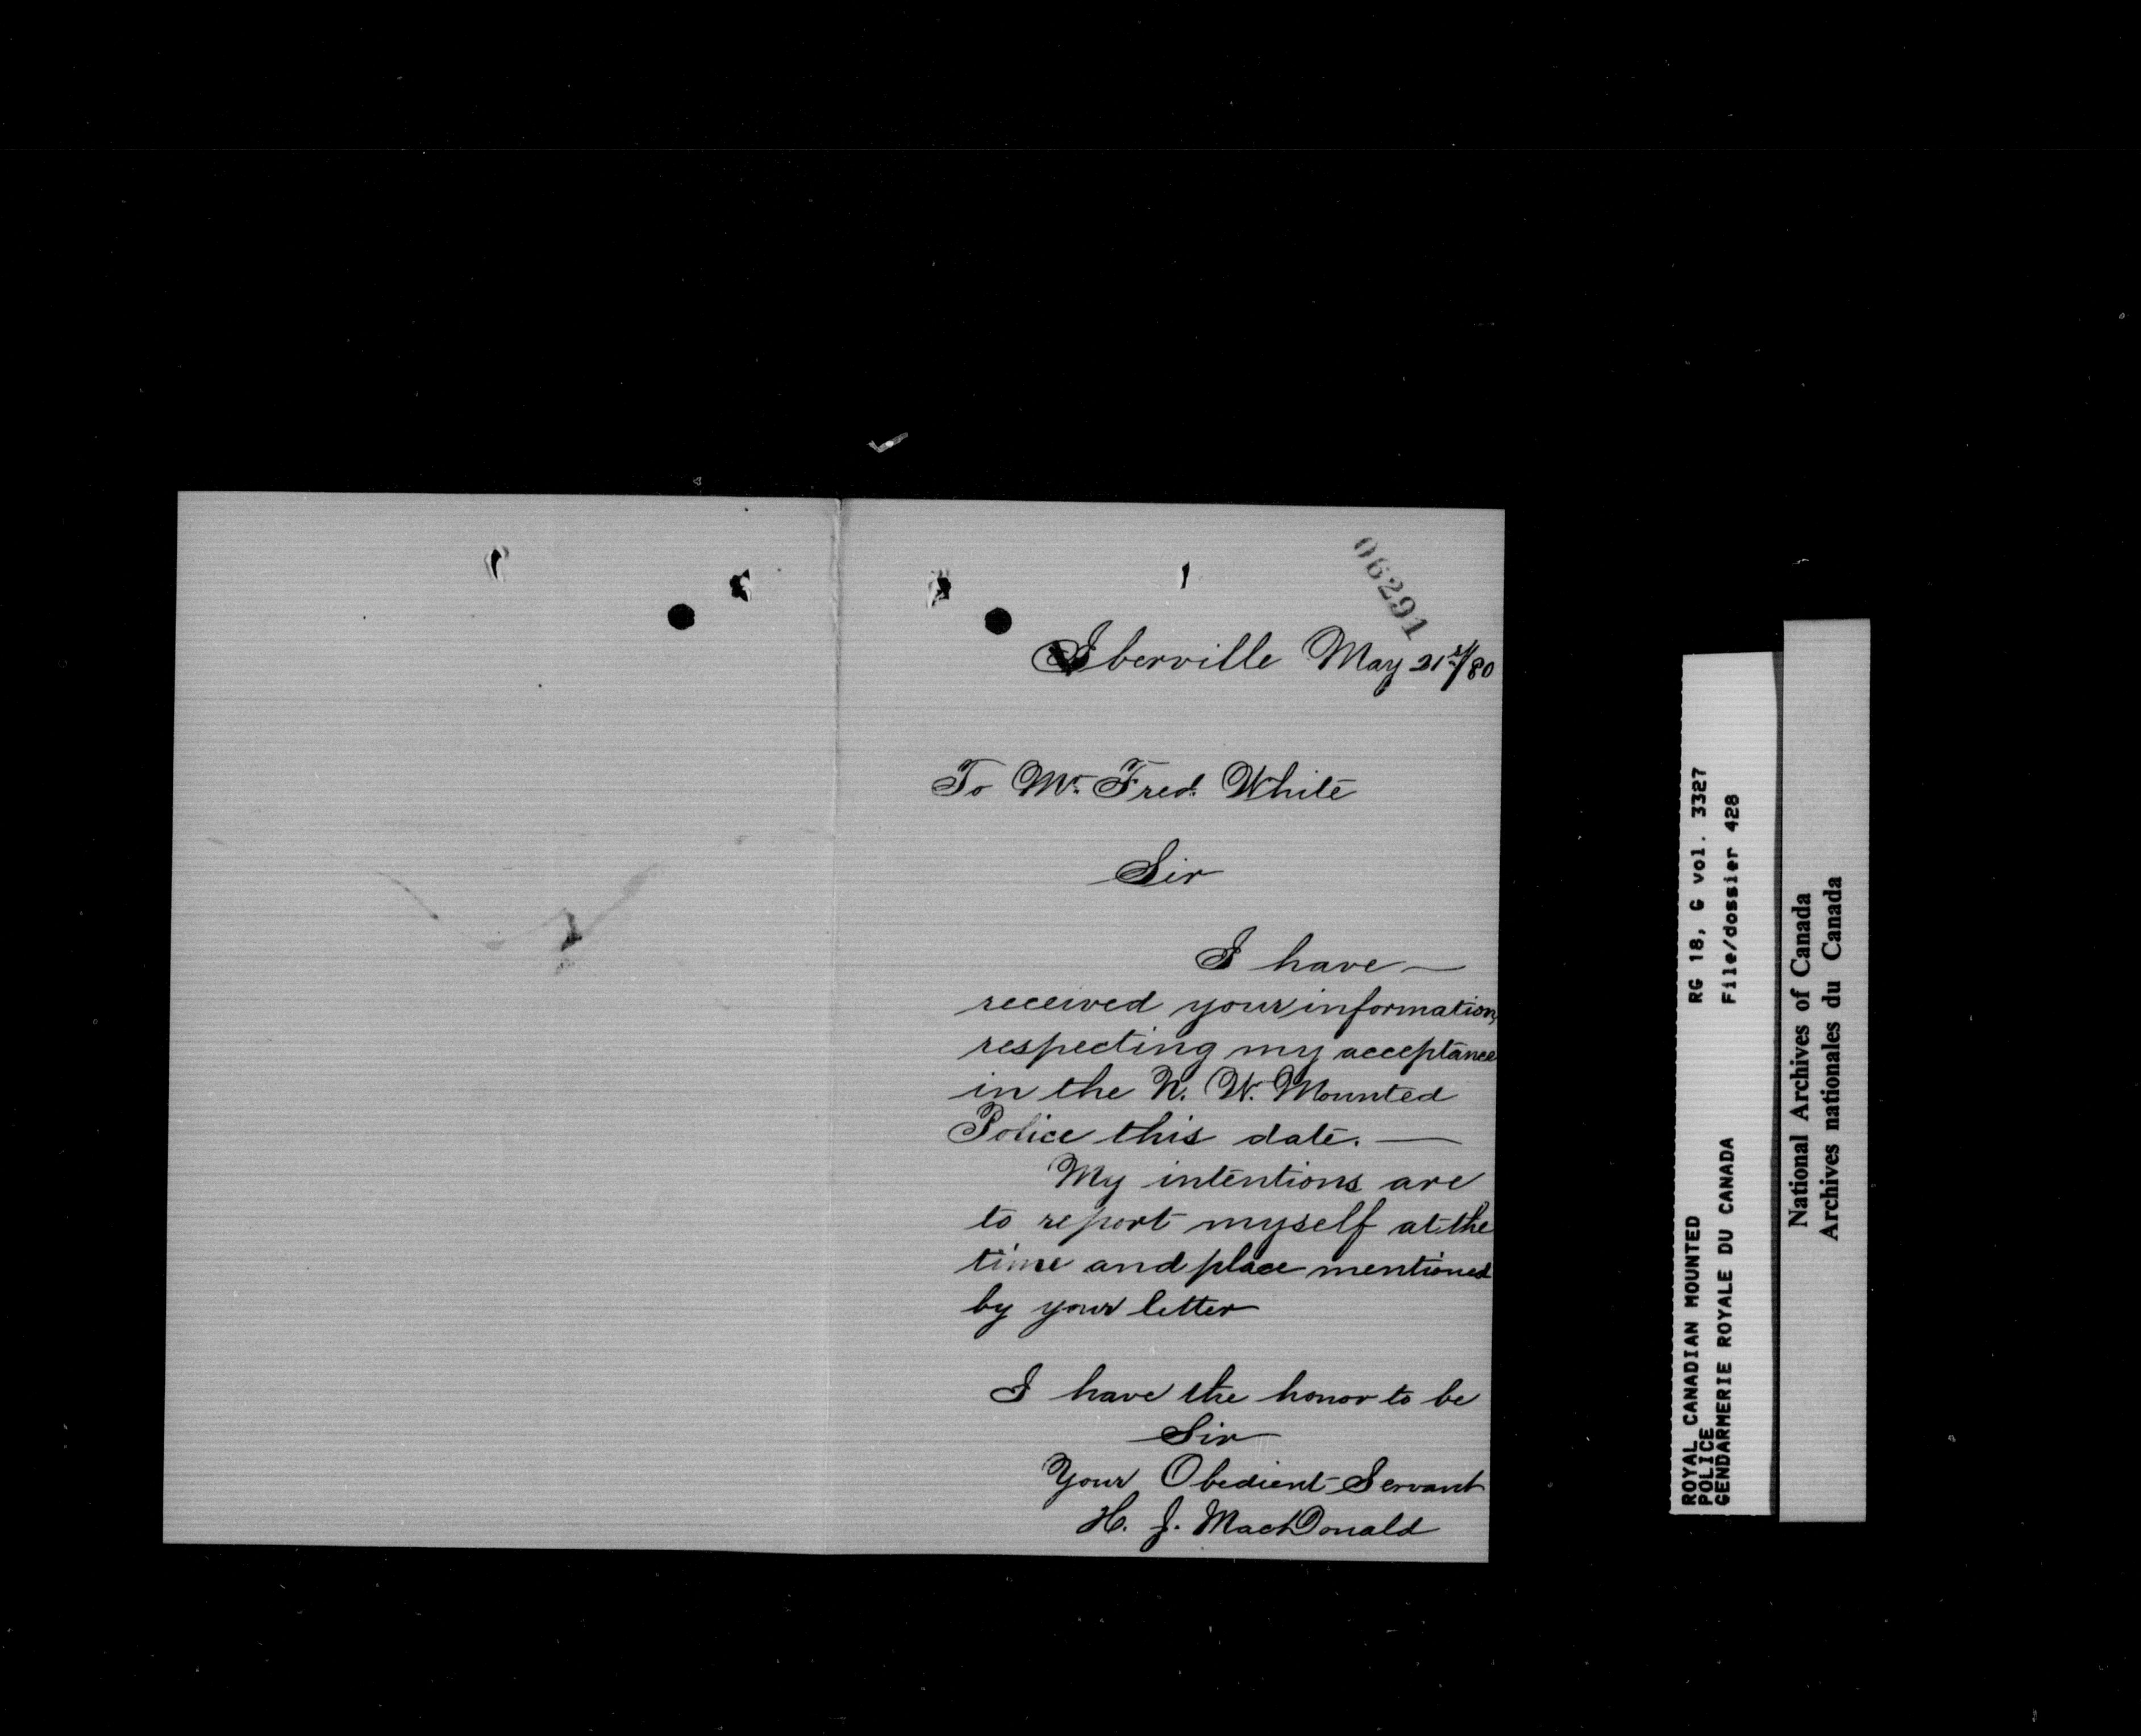 06291
Iberville May 21st/80
To Mr. Fred. White
Sir
I have —
received your information,
respecting my acceptance
in the N. W. Mounted
Police this date. —
My intentions are
to report myself at the
time and place mentioned
by your letter
I have the honor to be
Sir
Your Obedient Servant
H. J. MacDonald
ROYAL CANADIAN MOUNTED RG 18, G vol. 3327
POLICE
GENDARMERIE ROYALE DU CANADA File/dossier 428
National Archives of Canada
Archives nationales du Canada